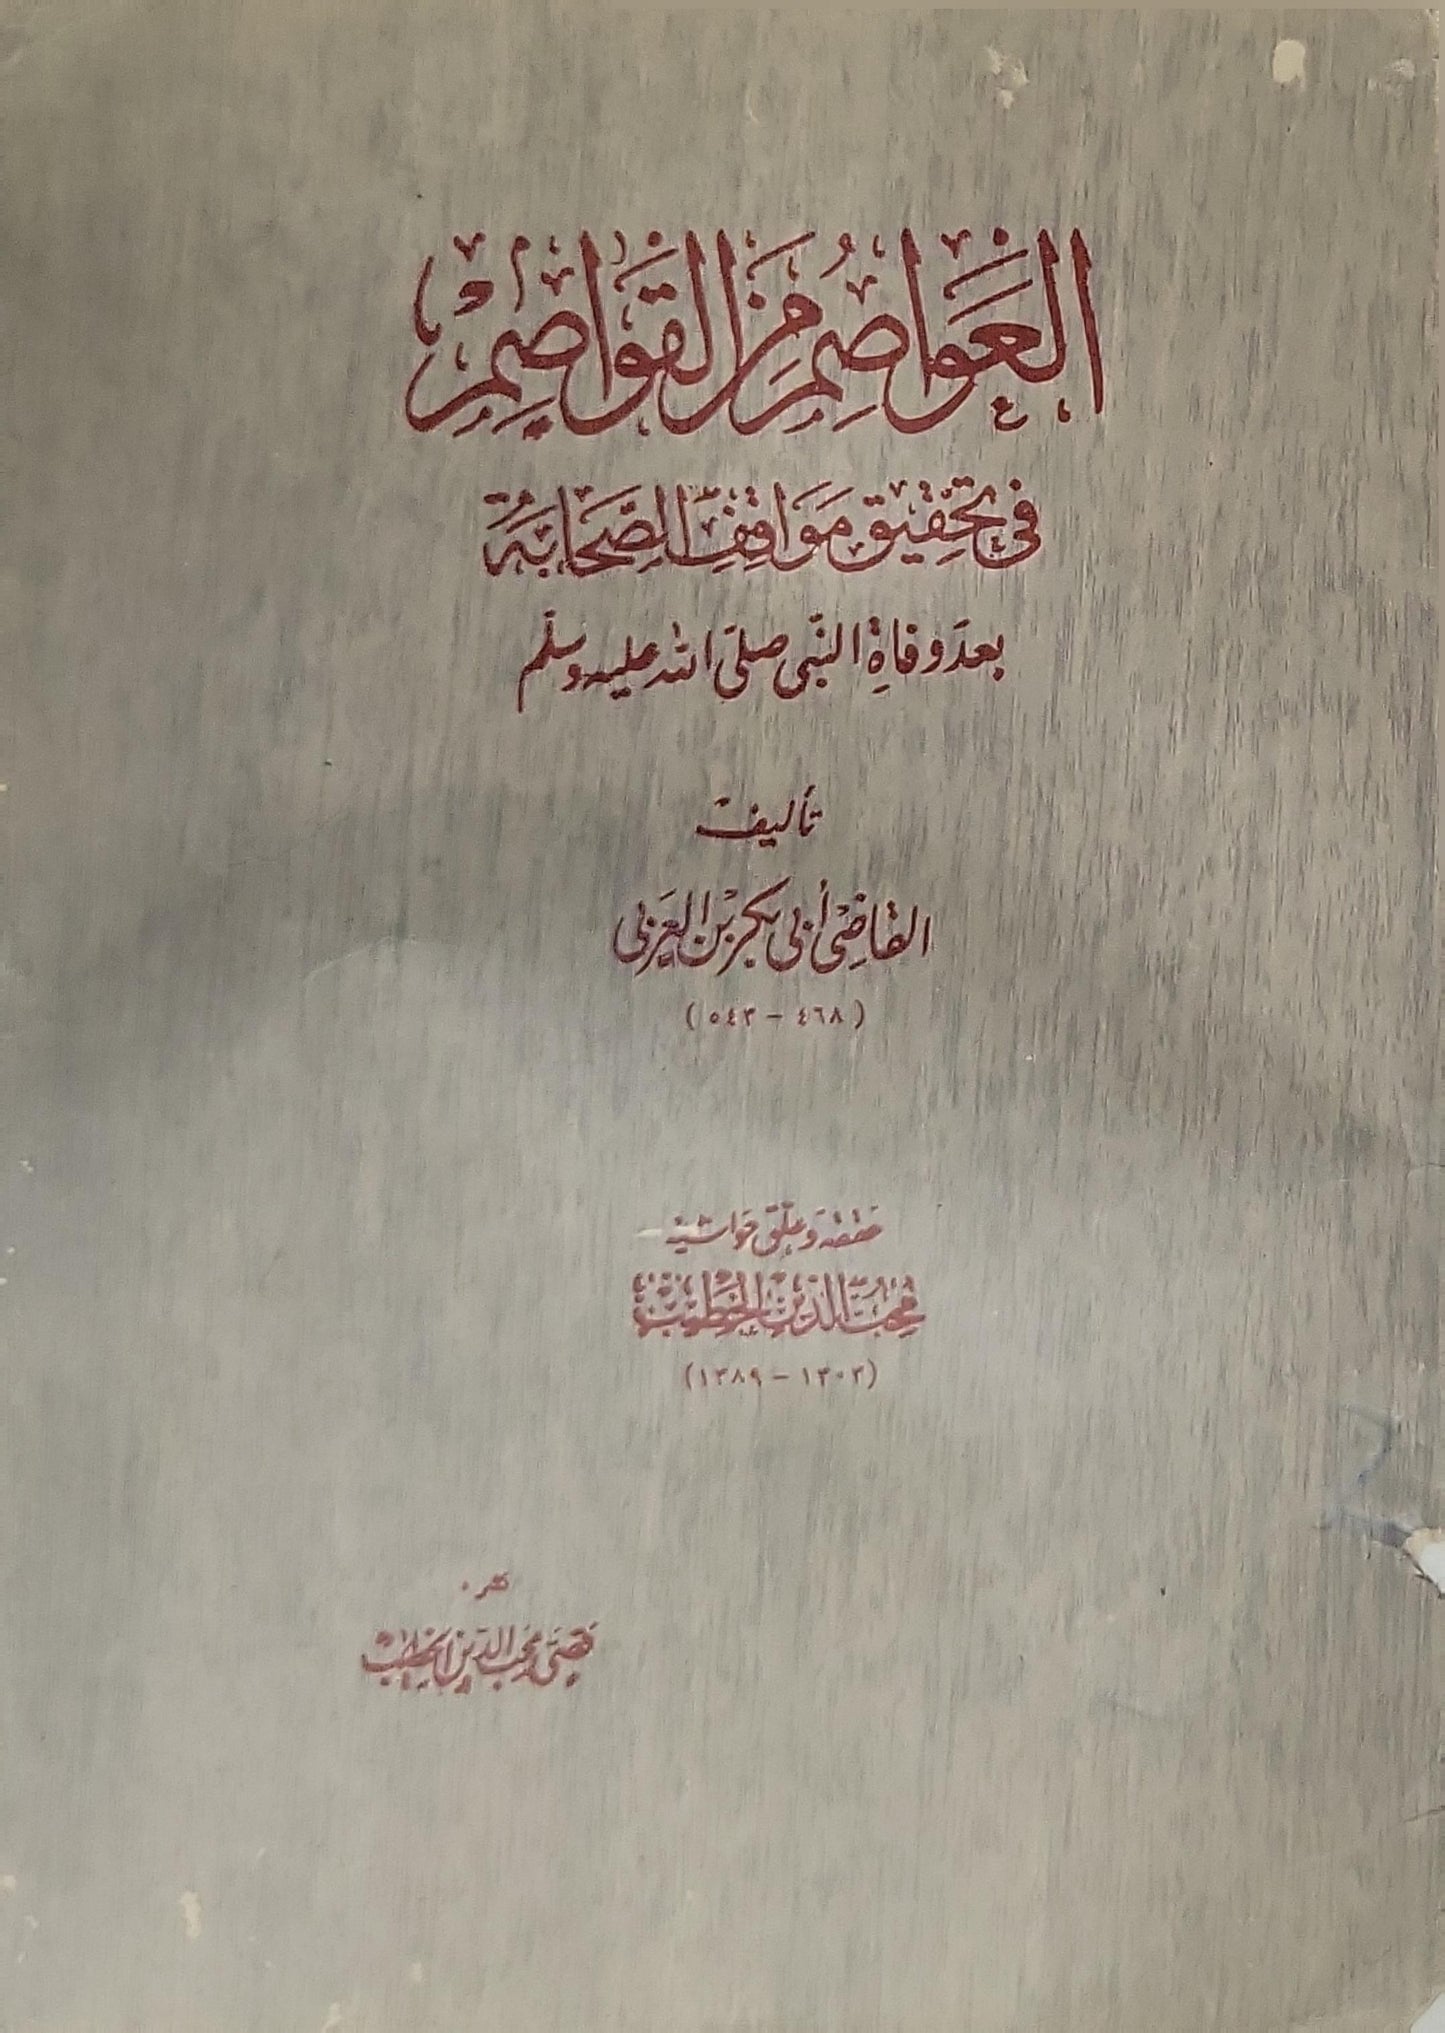 العَوَاصِمُ مِنَ القَوَاصِمْ
في تحقيق مَوَاقِفِ الصَّحَابَة
بعد وفاةِ النّبي صلى الله عليه وسلّم
تأليف
القاضي أبي بكر بن العَرَبي
(٤٦٨ - ٥٤٣)
حققه وعلّق حواشيه
مُحِبُّ الدّين الخطيب
(١٣٠٣ - ١٣٨٩)
نشره
قصيّ محب الدين الخطيب